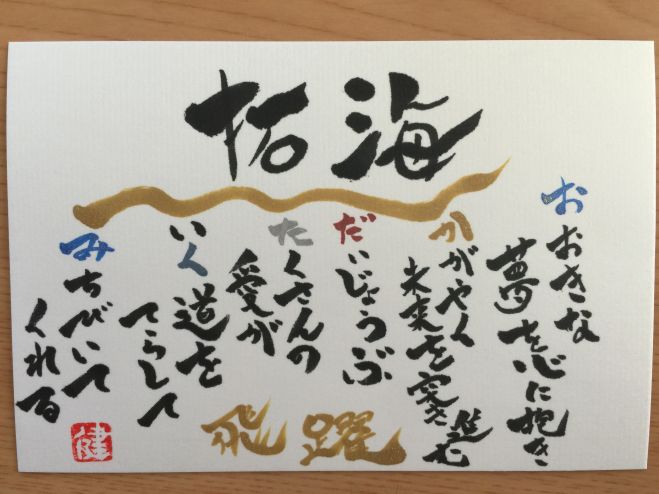 拓海
おおきな
夢を心に抱き
かがやく
未来を突き進む
だいじょうぶ
たくさんの
愛が
いく道を
てらして
みちびいて
くれる
飛躍
健